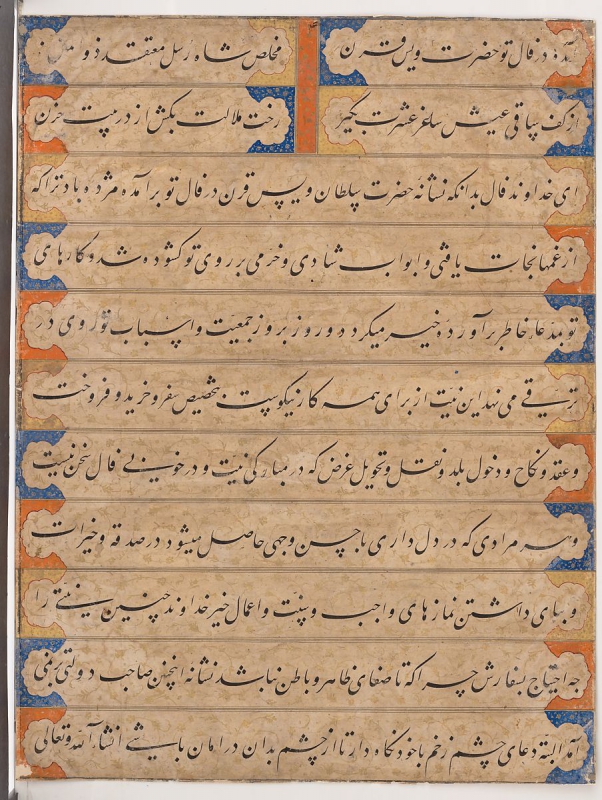 آمده در فال تو حضرت ویس قرن
مخلص شاه رسل معتقد ذو
از کف ساقی عیش ساغر عشرت بگیر
رخت ملالت بکش از در بیت حزن
ای خداوند فال بدانکه نشانهٔ حضرت سلطان ویس قرن در فال تو برآمده مژده باد ترا که
از غمها نجات یافتی و ابواب شادی و خرمی بر روی تو کشوده شد و کارهای
تو بمدعاء خاطر برآورده خیر میکردد و روز بروز جمعیت و اسباب تو روی در
ترقی می نهد این نیت از برای همه کار نیکوست بتخصیص سفر و خرید و فروخت
و عقد و نکاح و دخول بلد و نقل و تحویل غرض که در مبارکی نیت و در خوبی فال سخن نیست
و هر مرادی که در دل داری با حسن وجهی حاصل میشود در صدقه و خیرات
و بپای داشتن نمازهای واجب و سنت و اعمال خیر خداوند چنین نیتی را
چه احتیاج بسفارش چرا که تا صفای ظاهر و باطن نباشد نشانه اینچنین صاحب دولتی بر نمی
آمد البته دعای چشم زخم با خود نکاه دار تا از چشم بدان در امان باشی انشاء الله تعالی